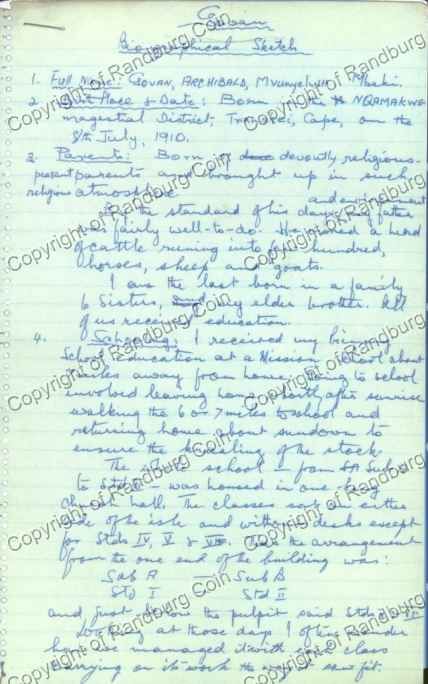 Govan
Biographical Sketch
1. Full Name: GOVAN, ARCHIBALD, Mvunyelwa Mbeki.
2. Birth Place & Date: Born in the NQAMAKWE
magisterial District, Transkei, Cape, on the
8th July, 1910.
3. Parents: Born of devoutly religious
parents and brought up in such
religious atmosphere and environment
the standard of his days my father
was fairly well-to-do. He owned a herd
of cattle running into hundred,
horses, sheep and goats.
I am the last born in a family
6 Sisters, elder brother. All
of us received education.
4. Schooling: I received my
School Education at a Mission School about
miles away from home. Going to school
involved leaving home shortly after sunrise
walking the 6 or 7 miles to school and
returning home about sundown to
ensure the kraaling of the stock.
The school – from Sub A
to Std – was housed in one big
church hall. The classes sat on either
side of the isle and without desks except
for Stds IV, V & VI. the arrangement
from the one end of the building was:
Sub A — Sub B
Std I Std II
and, just below the pulpit said Stds
Looking at those days I often wonder
how we managed it with each class
carrying on its work the way it saw fit.
Copyright of Randburg Coin